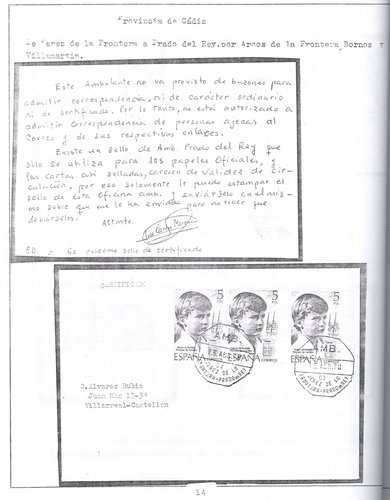 Provincia de Cádiz
-e Jerez de la Frontera a Prado del Rey.por Arcos de la Frontera, Bornos y
Villamartin.
Este Ambulante no va provisto de buzones para
admitir correspondencia, ni de carácter ordinario
ni de certificado. Por lo tanto, no está autorizado a
admitir correspondencia de personas ajenas al
Correo y de sus respectivos enlaces.
Existe un sello de Amb. Prado del Rey que
sólo se utiliza para los papeles oficiales, y
las cartas así selladas, carecen de validez de cir-
culación, por eso solamente le puedo estampar el
sello de esta Oficina amb. y enviárselo en el mis-
mo sobre que me lo ha enviado para no tener que
Attmte.
P.D. - No poseeme sello de certificado
CERTIFICADO
5
5
5
ESPAÑA
ESPAÑA
CORREOS
AMB.
AMB.
JEREZ DE LA
FRONTERA-PRADO REY
G.Alvarez Rubio
Juan Mas 17-3º
Villarreal-Castellon
14